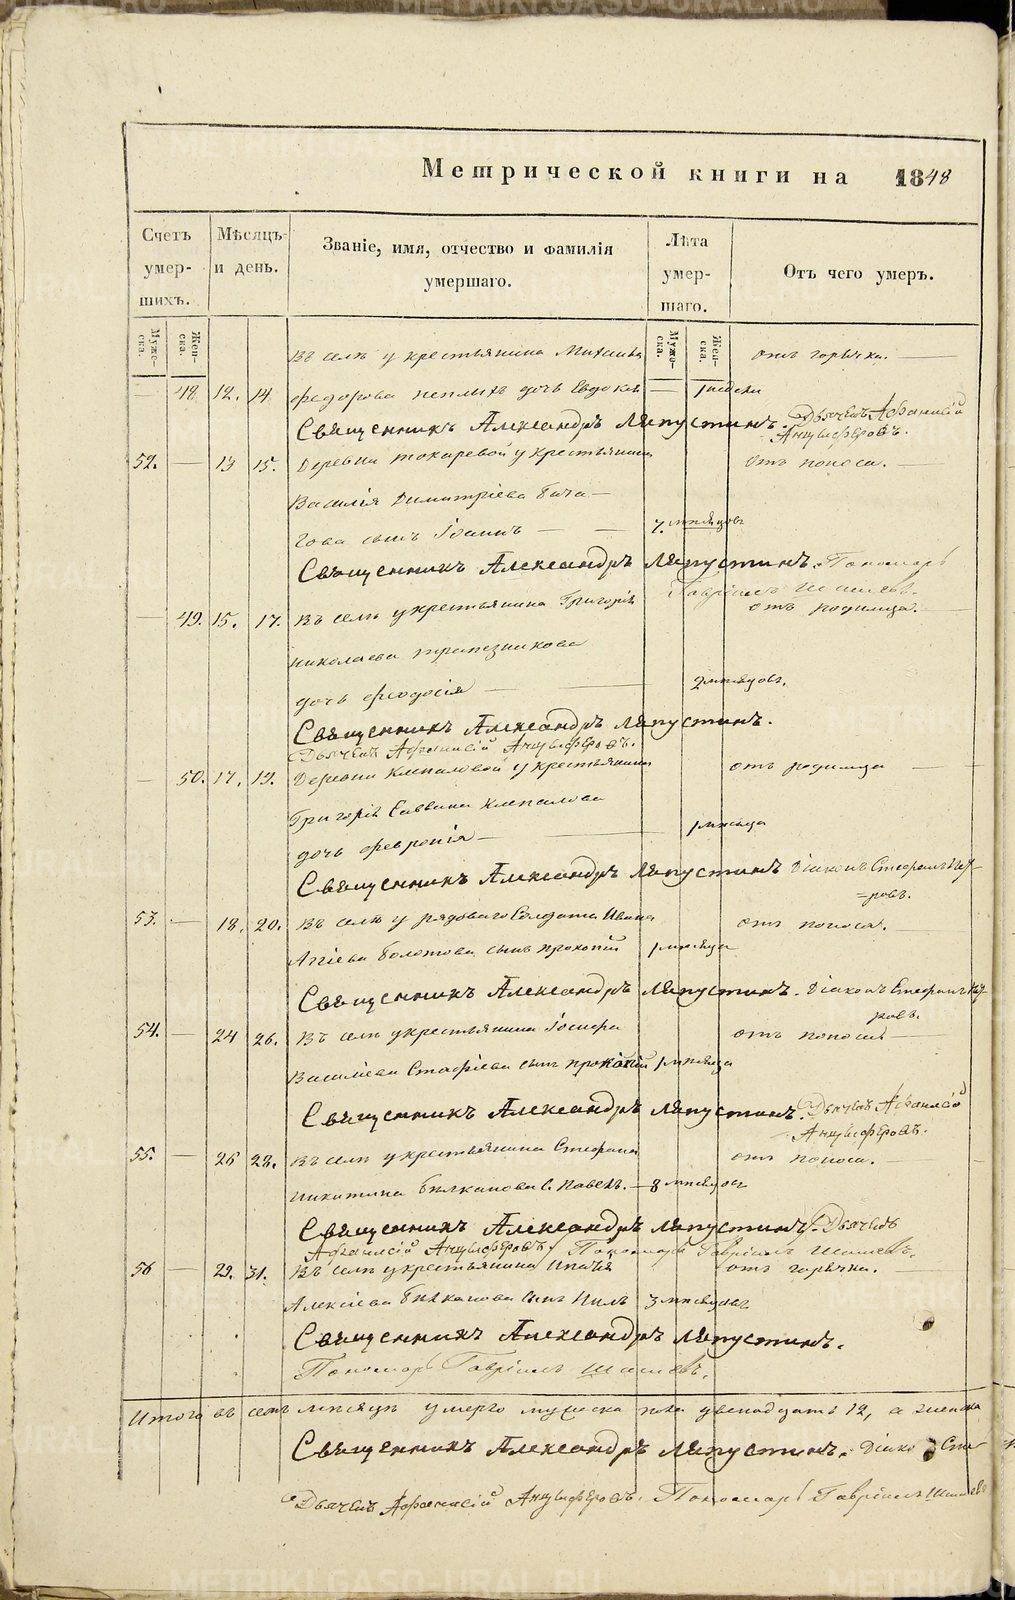 Метрической книги на 1848
Счетъ умершихъ.
Мѣсяцъ и день.
Званіе, имя, отчество и фамилія умершаго.
Лѣта умершаго.
Отъ чего умеръ.
Мужеска. Женска.
Мужеска. Женска.
Въ селѣ у крестьянина Михаила отъ горячки.
— 48. 12. 14. Федорова дочь Евдокія — 1 недели
Священникъ Александръ Ляпустинъ. Дьячекъ Афанасій
Анцыферовъ.
52. — 13 15. Деревни Токаревой у крестьянина отъ поноса.
Василія Димитріева
гова сынъ Іоаннъ — — 7. мѣсяцовъ
Священникъ Александръ Ляпустинъ. Пономарь
Гавріилъ Шишевъ.
— 49. 15. 17. Въ селѣ у крестьянина Григорія отъ родимца.
Николаева Трапезникова
дочь Феодосія — 2 мѣсяцовъ.
Священникъ Александръ Ляпустинъ.
Дьячекъ Афанасій Анцыферовъ.
— 50. 17. 19. Деревни Клепаловой у крестьянина отъ родимца
Григорія Саввина Клепалова
дочь Февронія — 1 мѣсяца
Священникъ Александръ Ляпустинъ Діаконъ Стефанъ
=ровъ.
53. — 18. 20. Въ селѣ у рядоваго Солдата Ивана отъ поноса.
Болотова сынъ Прокопій 1 мѣсяца
Священникъ Александръ Ляпустинъ. Діаконъ Стефанъ
ровъ.
54. — 24 26. Въ селѣ у крестьянина Іосифа отъ поноса
Василіева сынъ Прокопій 1 мѣсяца
Священникъ Александръ Ляпустинъ. Дьячекъ Афанасій
Анцыферовъ.
55. — 26 28. Въ селѣ у крестьянина Стефана отъ поноса.
Никитина Бѣлканова с. Павелъ. — 8 мѣсяцовъ
Священникъ Александръ Ляпустинъ. Дьячекъ
Афанасій Анцыферовъ, Пономарь Гавріилъ Шишевъ.
56 — 29. 31. Въ селѣ у крестьянина Ипатія отъ горячки.
Алексіева Бѣлканова сынъ Нилъ 3 мѣсяцовъ
Священникъ Александръ Ляпустинъ.
Пономарь Гавріилъ Шишевъ.
Итого въ семъ мѣсяцѣ умерло мужеска пола двенадцать 12, а женска
Священникъ Александръ Ляпустинъ. Діако Сте
Дьячекъ Афанасій Анцыферовъ. Пономарь Гавріилъ Шишевъ